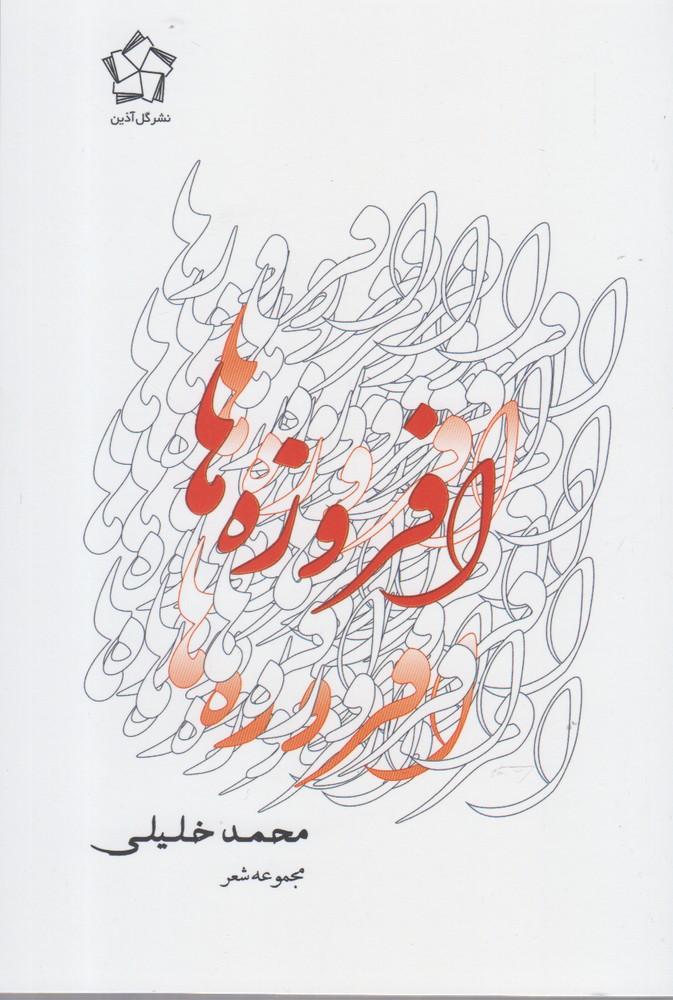 نشر گل آذین
افروزه‌ها
محمد خلیلی
مجموعه شعر